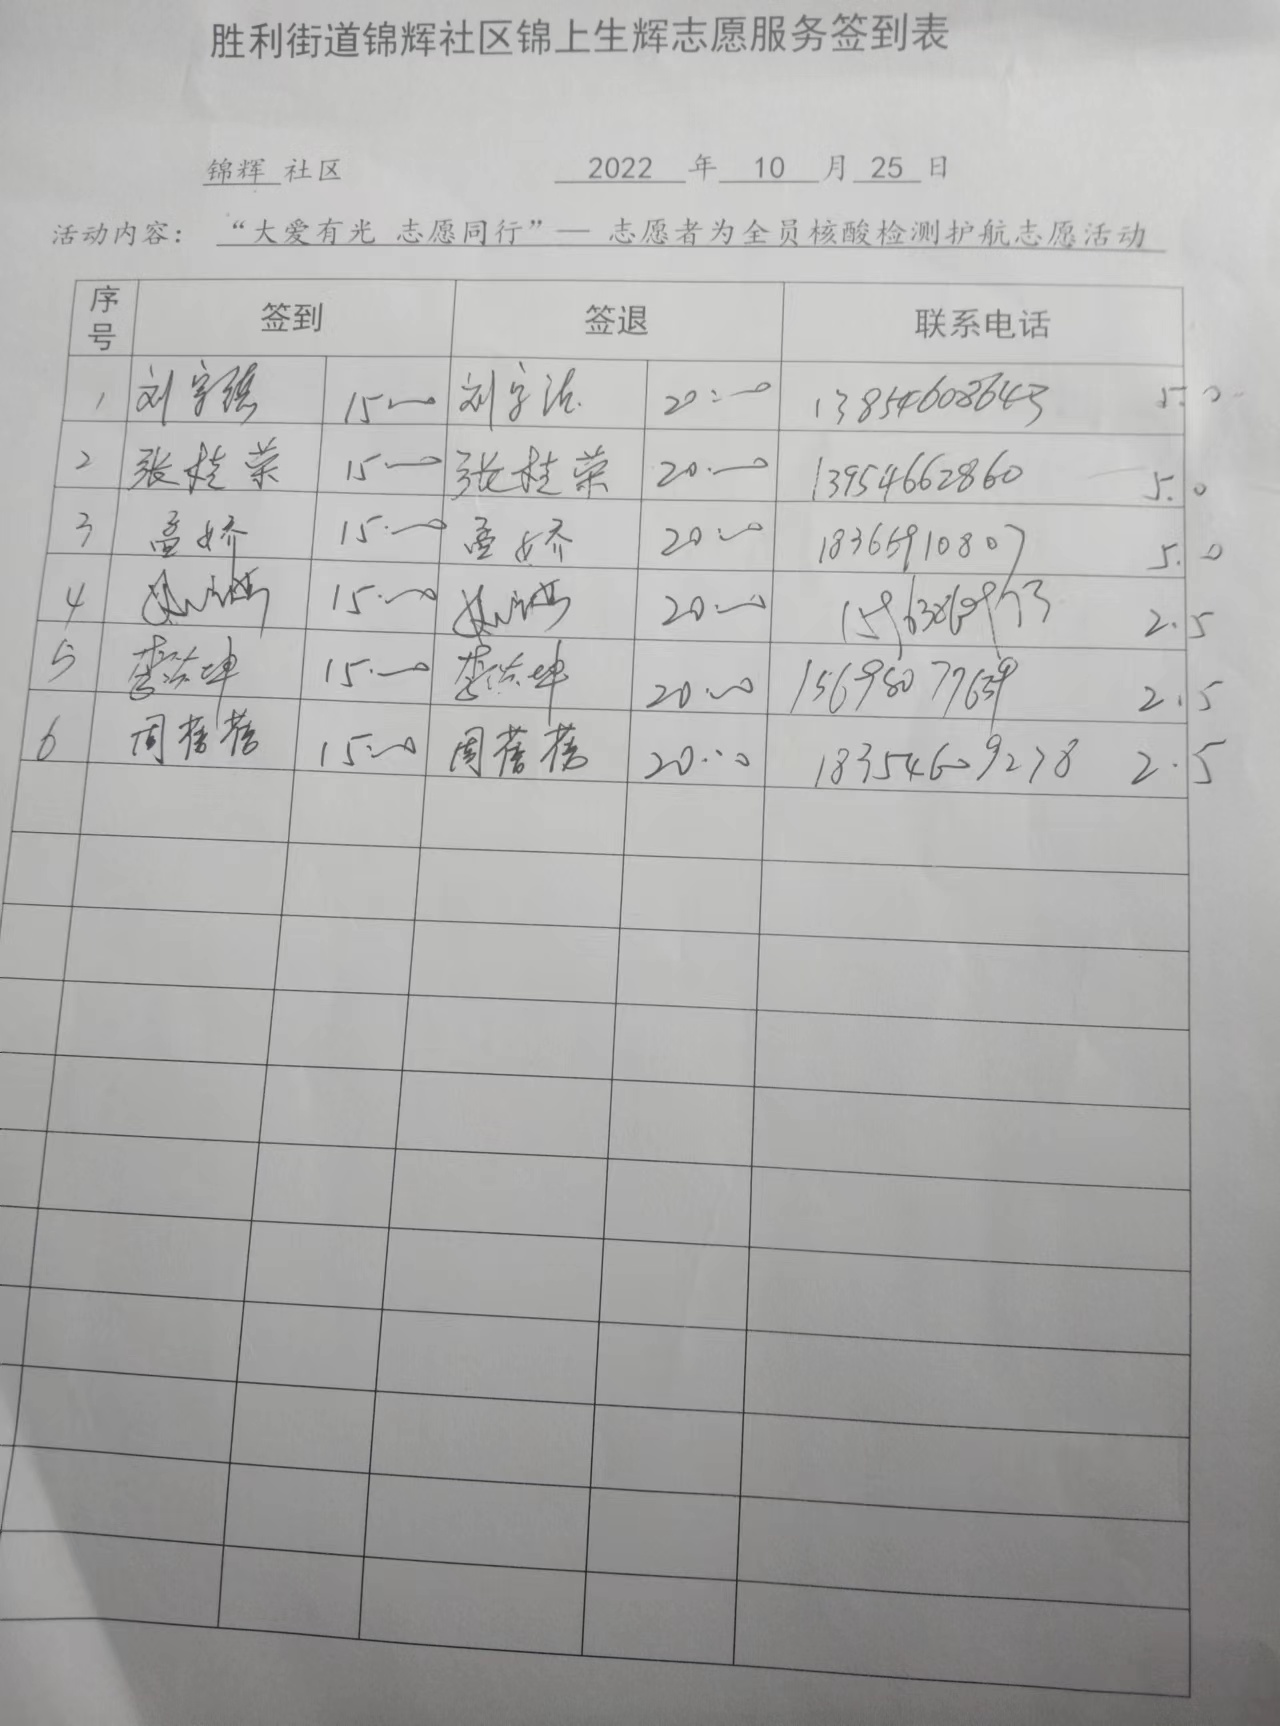 胜利街道锦辉社区锦上生辉志愿服务签到表
锦辉 社区 2022 年 10 月 25 日
活动内容： “大爱有光 志愿同行”— 志愿者为全员核酸检测护航志愿活动
序号 签到 签退 联系电话
1 刘 15:00 刘 20:00 13854608643 5.0
2 张桂荣 15:00 张桂荣 20:00 13954662860 5.0
3 孟娇 15:00 孟娇 20:00 18365910807 5.0
4 15:00 20:00 2.5
5 李洪坤 15:00 李洪坤 20:00 2.5
6 周蓓蓓 15:00 周蓓蓓 20:00 18354609278 2.5